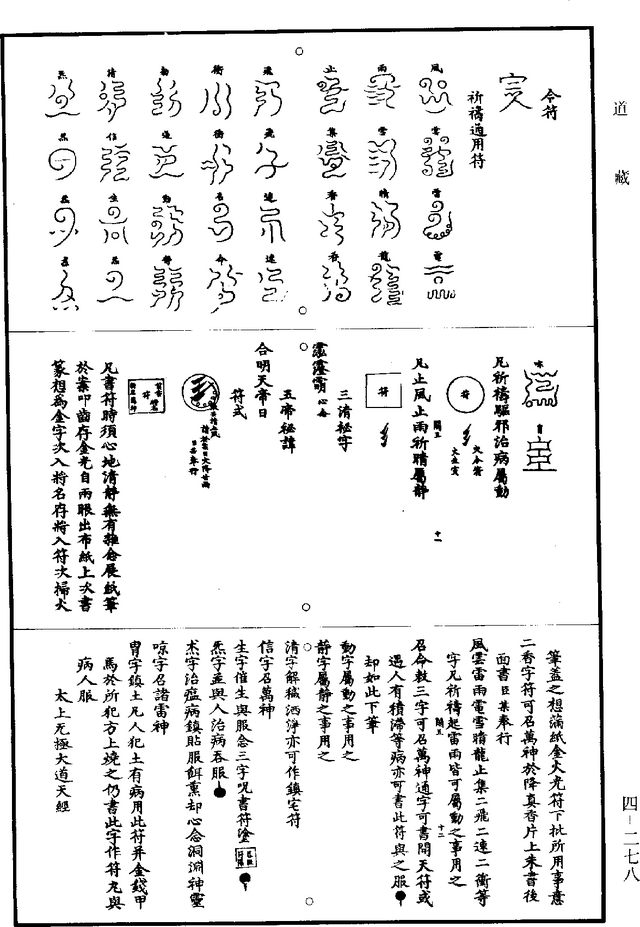 道藏
令符
祈禱通用符
風 雲 雷 電
雨 雪 晴 龍
止 集 香 香
飛 飛 達 達
衝 衝 召 命
勅 通 動 靜
清 信 生 炁
凡祈禱驅邪治病屬動
符
火令符
凡止風止雨祈晴屬靜
符
三清秘字
五帝秘諱
合明天帝日
符式
符
凡書符時須心地清靜無有雜念展紙筆
於案叩齒存金光自兩眼出布紙上次書
篆想為金字次入將名存將入符次掃火
筆蓋之想滿紙金火光符下批所用事意
二香字符可召萬神於降真香片上朱書後
面書臣某奉行
風雲雷雨電雪晴龍止集二飛二達二衝等
字凡祈禱起雷雨皆可屬動之事用之
召命敕三字可召萬神通字可書開天符或
遇人有積滯等病亦可書此符與之服
却如此下筆
動字屬動之事用之
靜字屬靜之事用之
清字解穢洒淨亦可作鎮宅符
信字召萬神
生字催生與服念三字呪書符塗
炁字並與人治病吞服
朮字治瘟病鎮貼服餌熏却心念洞淵神靈
㖫字召諸雷神
胄字鎮土凡人犯土有病用此符并金錢甲
馬於所犯方上燒之仍書此字作符丸與
病人服
太上无極大道天經
四－二七八